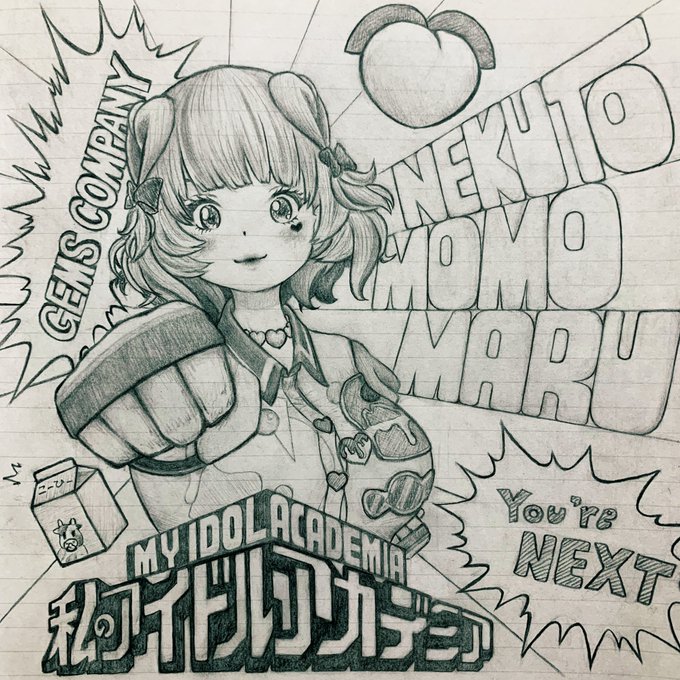 GEMS COMPANY
NEKUTO
MOMO
MARU
こーひー
You're
NEXT
MY IDOL ACADEMIA
私のアイドルアカデミア